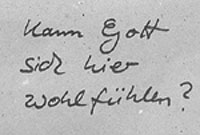 Kann Gott
sich hier
wohlfühlen?